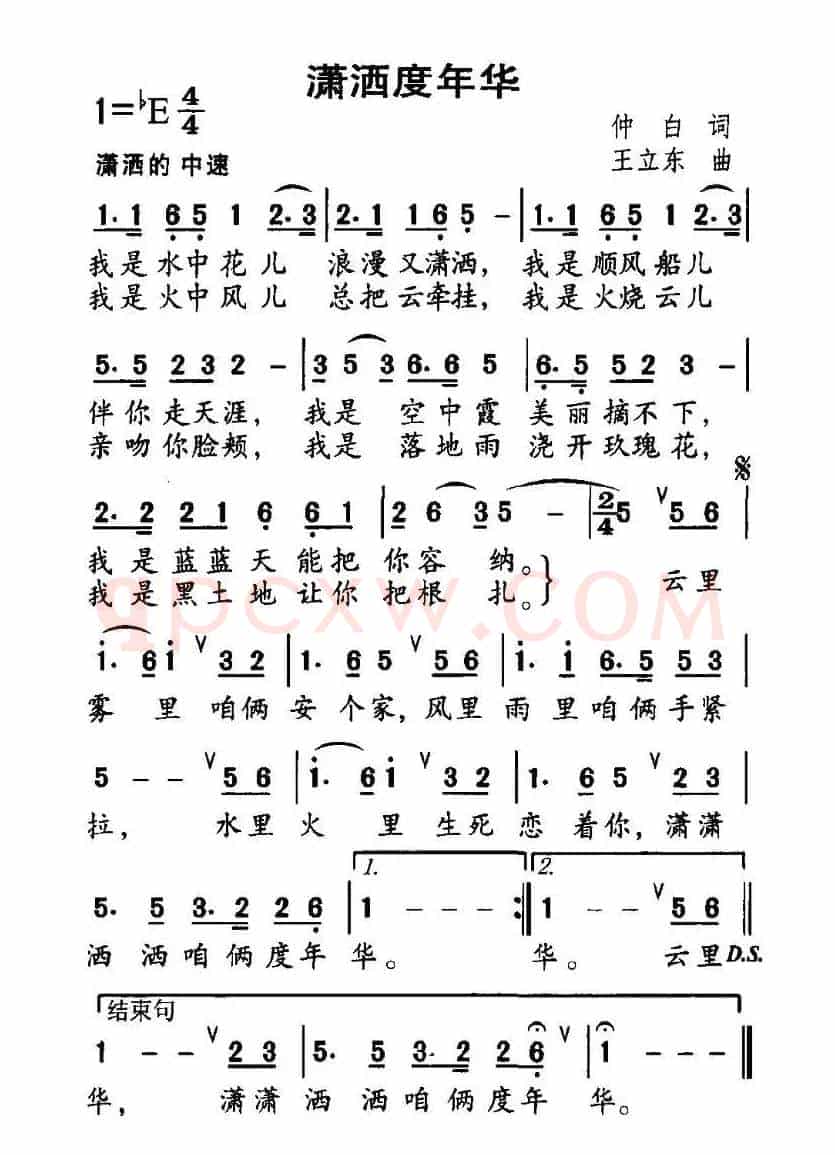 潇洒度年华
1=♭E 4/4
仲 白 词
潇洒的 中速
王立东 曲
1. 1 6 5 1 2. 3 | 2. 1 1 6 5 - | 1. 1 6 5 1 2. 3 |
我是水中花儿 浪漫又潇洒, 我是顺风船儿
我是火中风儿 总把云牵挂, 我是火烧云儿
5. 5 2 3 2 - | 3 5 3 6. 6 5 | 6. 5 5 2 3 - |
伴你走天涯, 我是 空中霞 美丽摘不下,
亲吻你脸颊, 我是 落地雨 浇开玖瑰花,
2. 2 2 1 6 6 1 | 2 6 3 5 - | 2/4 5 V 5 6 |
我是蓝蓝天能把 你容 纳。} 云里
我是黑土地让你 把根 扎。
1. 6 1 V 3 2 | 1. 6 5 V 5 6 | 1. 1 6. 5 5 3 |
雾 里 咱俩 安 个家, 风里 雨 里咱俩手紧
5 - - V 5 6 | 1. 6 1 V 3 2 | 1. 6 5 V 2 3 |
拉, 水里 火 里 生死 恋 着你, 潇潇
1. 2.
5. 5 3. 2 2 6 | 1 - - - :| 1 - - V 5 6 ||
洒 洒咱俩度年 华。 华。 云里 D.S.
结束句
1 - - V 2 3 | 5. 5 3. 2 2 6 V | 1 - - - ||
华, 潇潇 洒 洒咱俩度年 华。
qpcxw.com